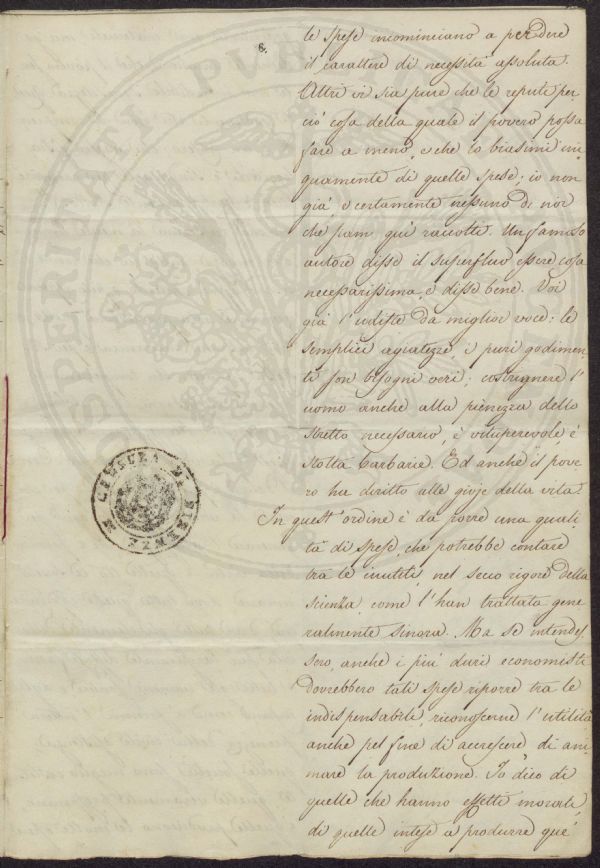 6.
le spese incominciano a perdere
il carattere di necessità assoluta.
Altri vi sia pure che le reputi per
ciò cosa della quale il povero possa
fare a meno, e che lo biasimi ini
quamente di quelle spese; io non
già, e certamente nessuno di noi
che siam qui raccolti. Un famoso
autore disse il superfluo essere cosa
necessarissima, e disse bene. Voi
già l'udiste da miglior voce: le
semplici agiatezze, i puri godimen
ti son bisogni veri; costrignere l'
uomo anche alla pienezza dello
stretto necessario, è vituperevole è
stolta barbarie. Ed anche il pove
ro ha diritto alle gioje della vita.
In quest'ordine è da porre una quali
tà di spese, che potrebbe contare
tra le inutili, nel secco rigore della
scienza, come l'han trattata gene
ralmente sinora. Ma se intendes
sero, anche i più duri economisti
dovrebbero tali spese riporre tra le
indispensabili, riconoscerne l'utilità
anche pel fine di accrescere di ani
mare la produzione. Io dico di
quelle che hanno effetti morali,
di quelle intese a produrre que'
CENSURA DI FIRENZE
OSPERITATI PVB